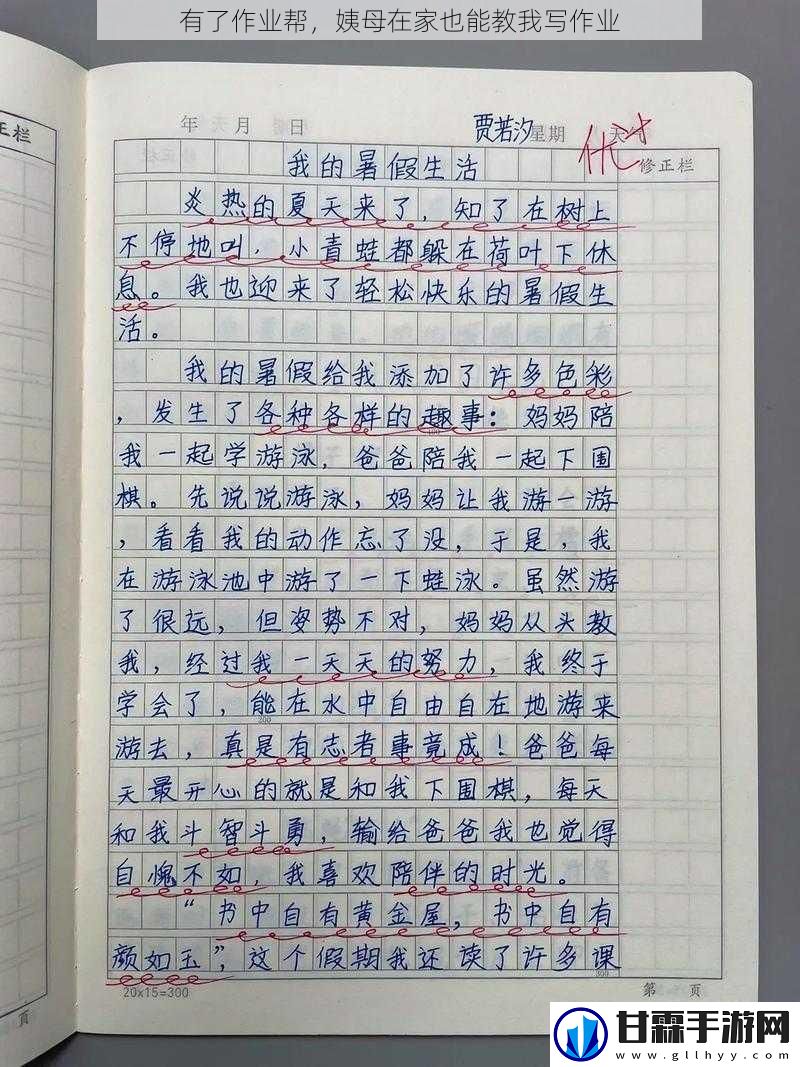 有了作业帮，姨母在家也能教我写作业
正栏
年 月 日 贾若汐 星期 天气 优++
修正栏
我的暑假生活
炎热的夏天来了，知了在树上
不停地叫，小青蛙都躲在荷叶下休
息。我也迎来了轻松快乐的暑假生
活。
我的暑假给我添加了许多色彩
，发生了各种各样的趣事：妈妈陪
我一起学游泳，爸爸陪我一起下围
棋。先说说游泳，妈妈让我游一游
，看看我的动作忘了没，于是，我
在游泳池中游了一下蛙泳。虽然游
了很远，但姿势不对，妈妈从头教
我，经过我一天天的努力，我终于
学会了，能在水中自由自在地游来
200
游去，真是有志者事竟成！爸爸每
天最开心的就是和我下围棋，每天
和我斗智斗勇，输给爸爸我也觉得
自愧不如，我喜欢陪伴的时光。
“书中自有黄金屋，书中自有
颜如玉”，这个假期我还读了许多课
300
20×15=300
第 页
页
甘霖手游网
www.gllhyy.com